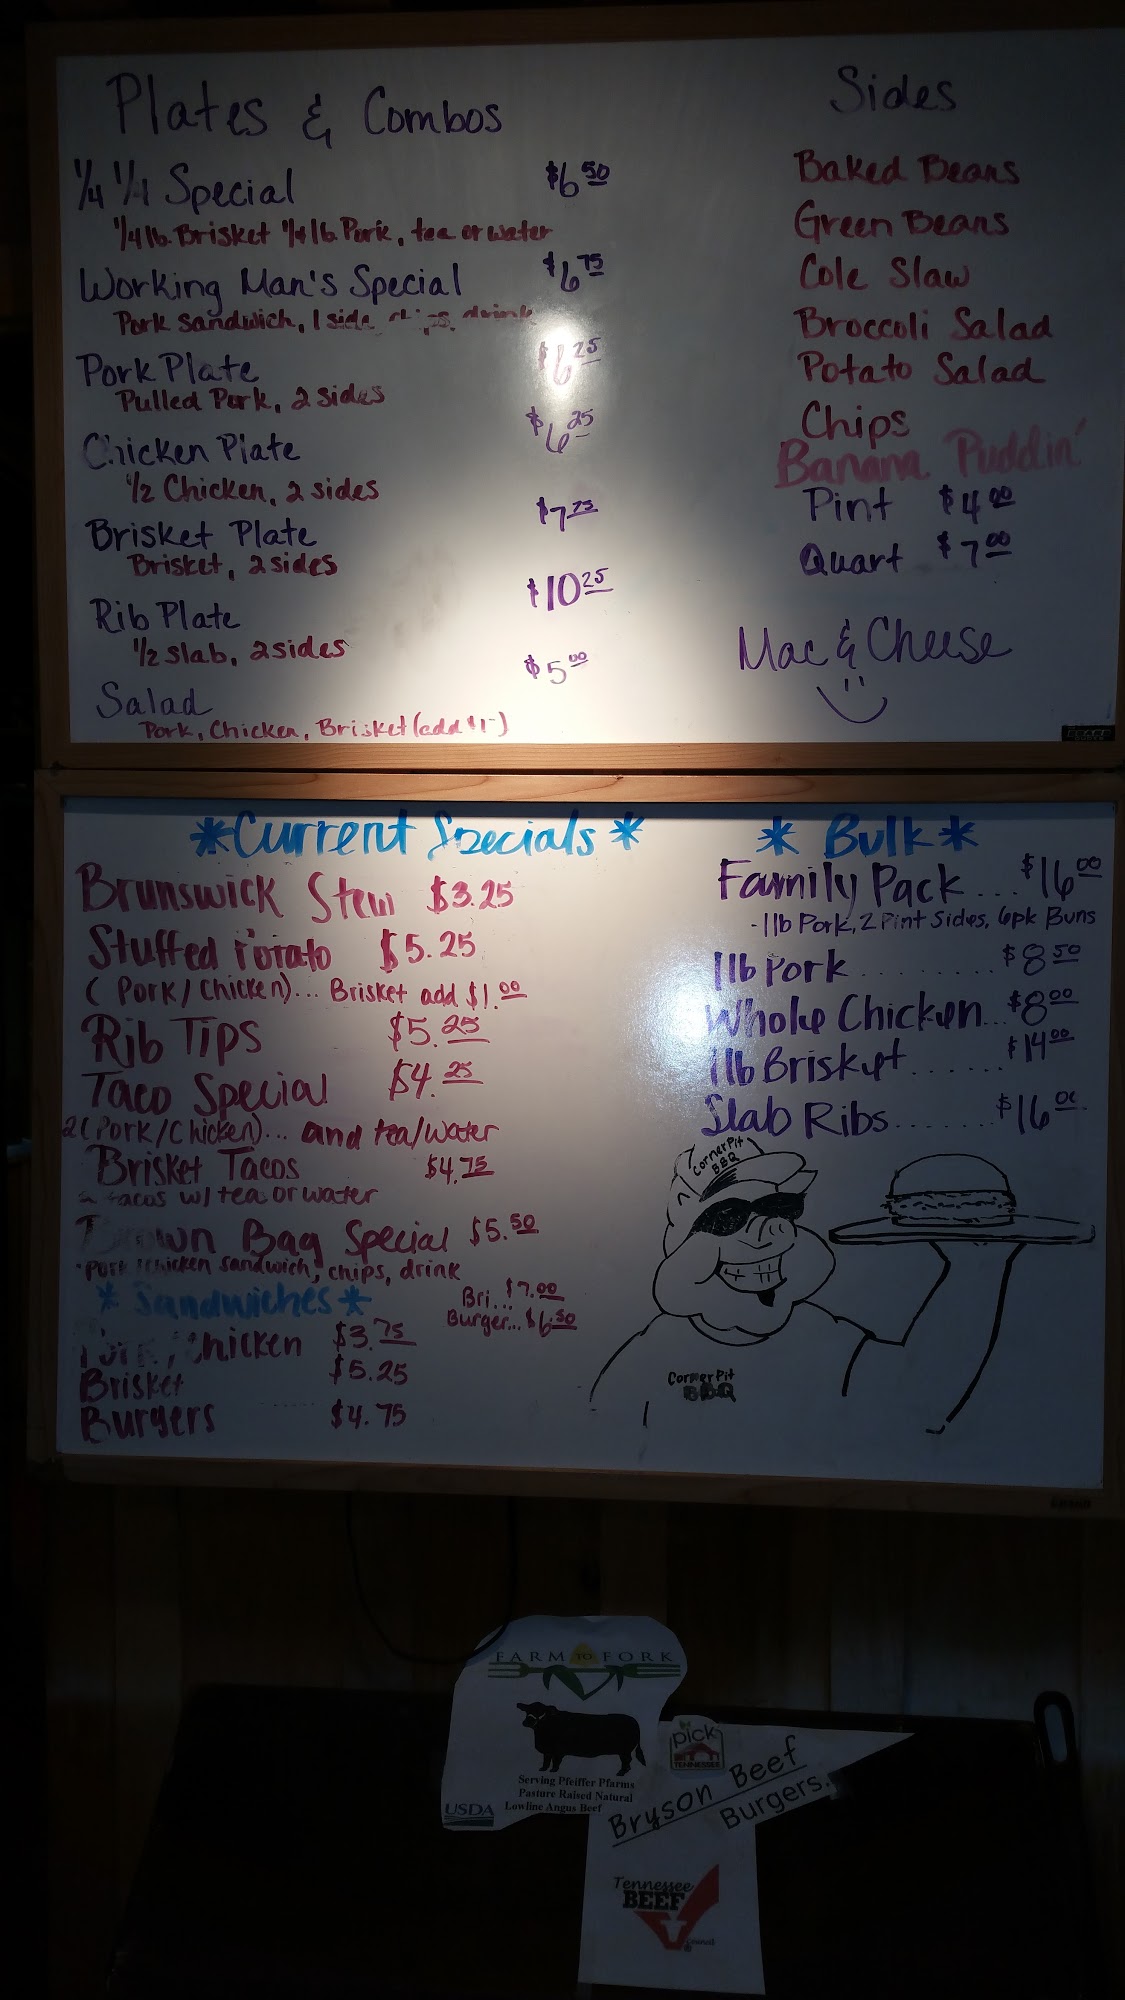 Plates & Combos
1/4 1/4 Special $6.50
1/4 lb. Brisket 1/4 lb Pork, tea or water
Working Man's Special $6.75
Pork sandwich, 1 side, chips, drink
Pork Plate $6.25
Pulled Pork, 2 sides
Chicken Plate $6.25
1/2 Chicken, 2 sides
Brisket Plate $7.75
Brisket, 2 sides
Rib Plate $10.25
1/2 slab, 2 sides
Salad $5.00
Pork, Chicken, Brisket (add $1-)
Sides
Baked Beans
Green Beans
Cole Slaw
Broccoli Salad
Potato Salad
Chips
Banana Puddin'
Pint $4.00
Quart $7.00
Mac & Cheese
*Current Specials*
Brunswick Stew $3.25
Stuffed Potato $5.25
(Pork/Chicken)... Brisket add $1.00
Rib Tips $5.25
Taco Special $4.25
2 (Pork/Chicken)... and tea/water
Brisket Tacos $4.75
2 tacos w/ tea or water
Brown Bag Special $5.50
Pork/Chicken sandwich, chips, drink
Bri... $7.00
Burger... $6.50
*Sandwiches*
Pork/Chicken $3.75
Brisket $5.25
Burgers ..... $4.75
*Bulk*
Family Pack... $16.00
-1lb Pork, 2 Pint Sides, 6pk Buns
1lb Pork ......... $8.50
Whole Chicken... $8.00
1lb Brisket ....... $14.00
Slab Ribs ........ $16.00
Corner Pit
BBQ
Corner Pit
BBQ
FARM TO FORK
Serving Pfeiffer Pfarms
Pasture Raised Natural
Lowline Angus Beef
USDA
pick
TENNESSEE
Bryson Beef
Burgers.
Tennessee
BEEF
Council